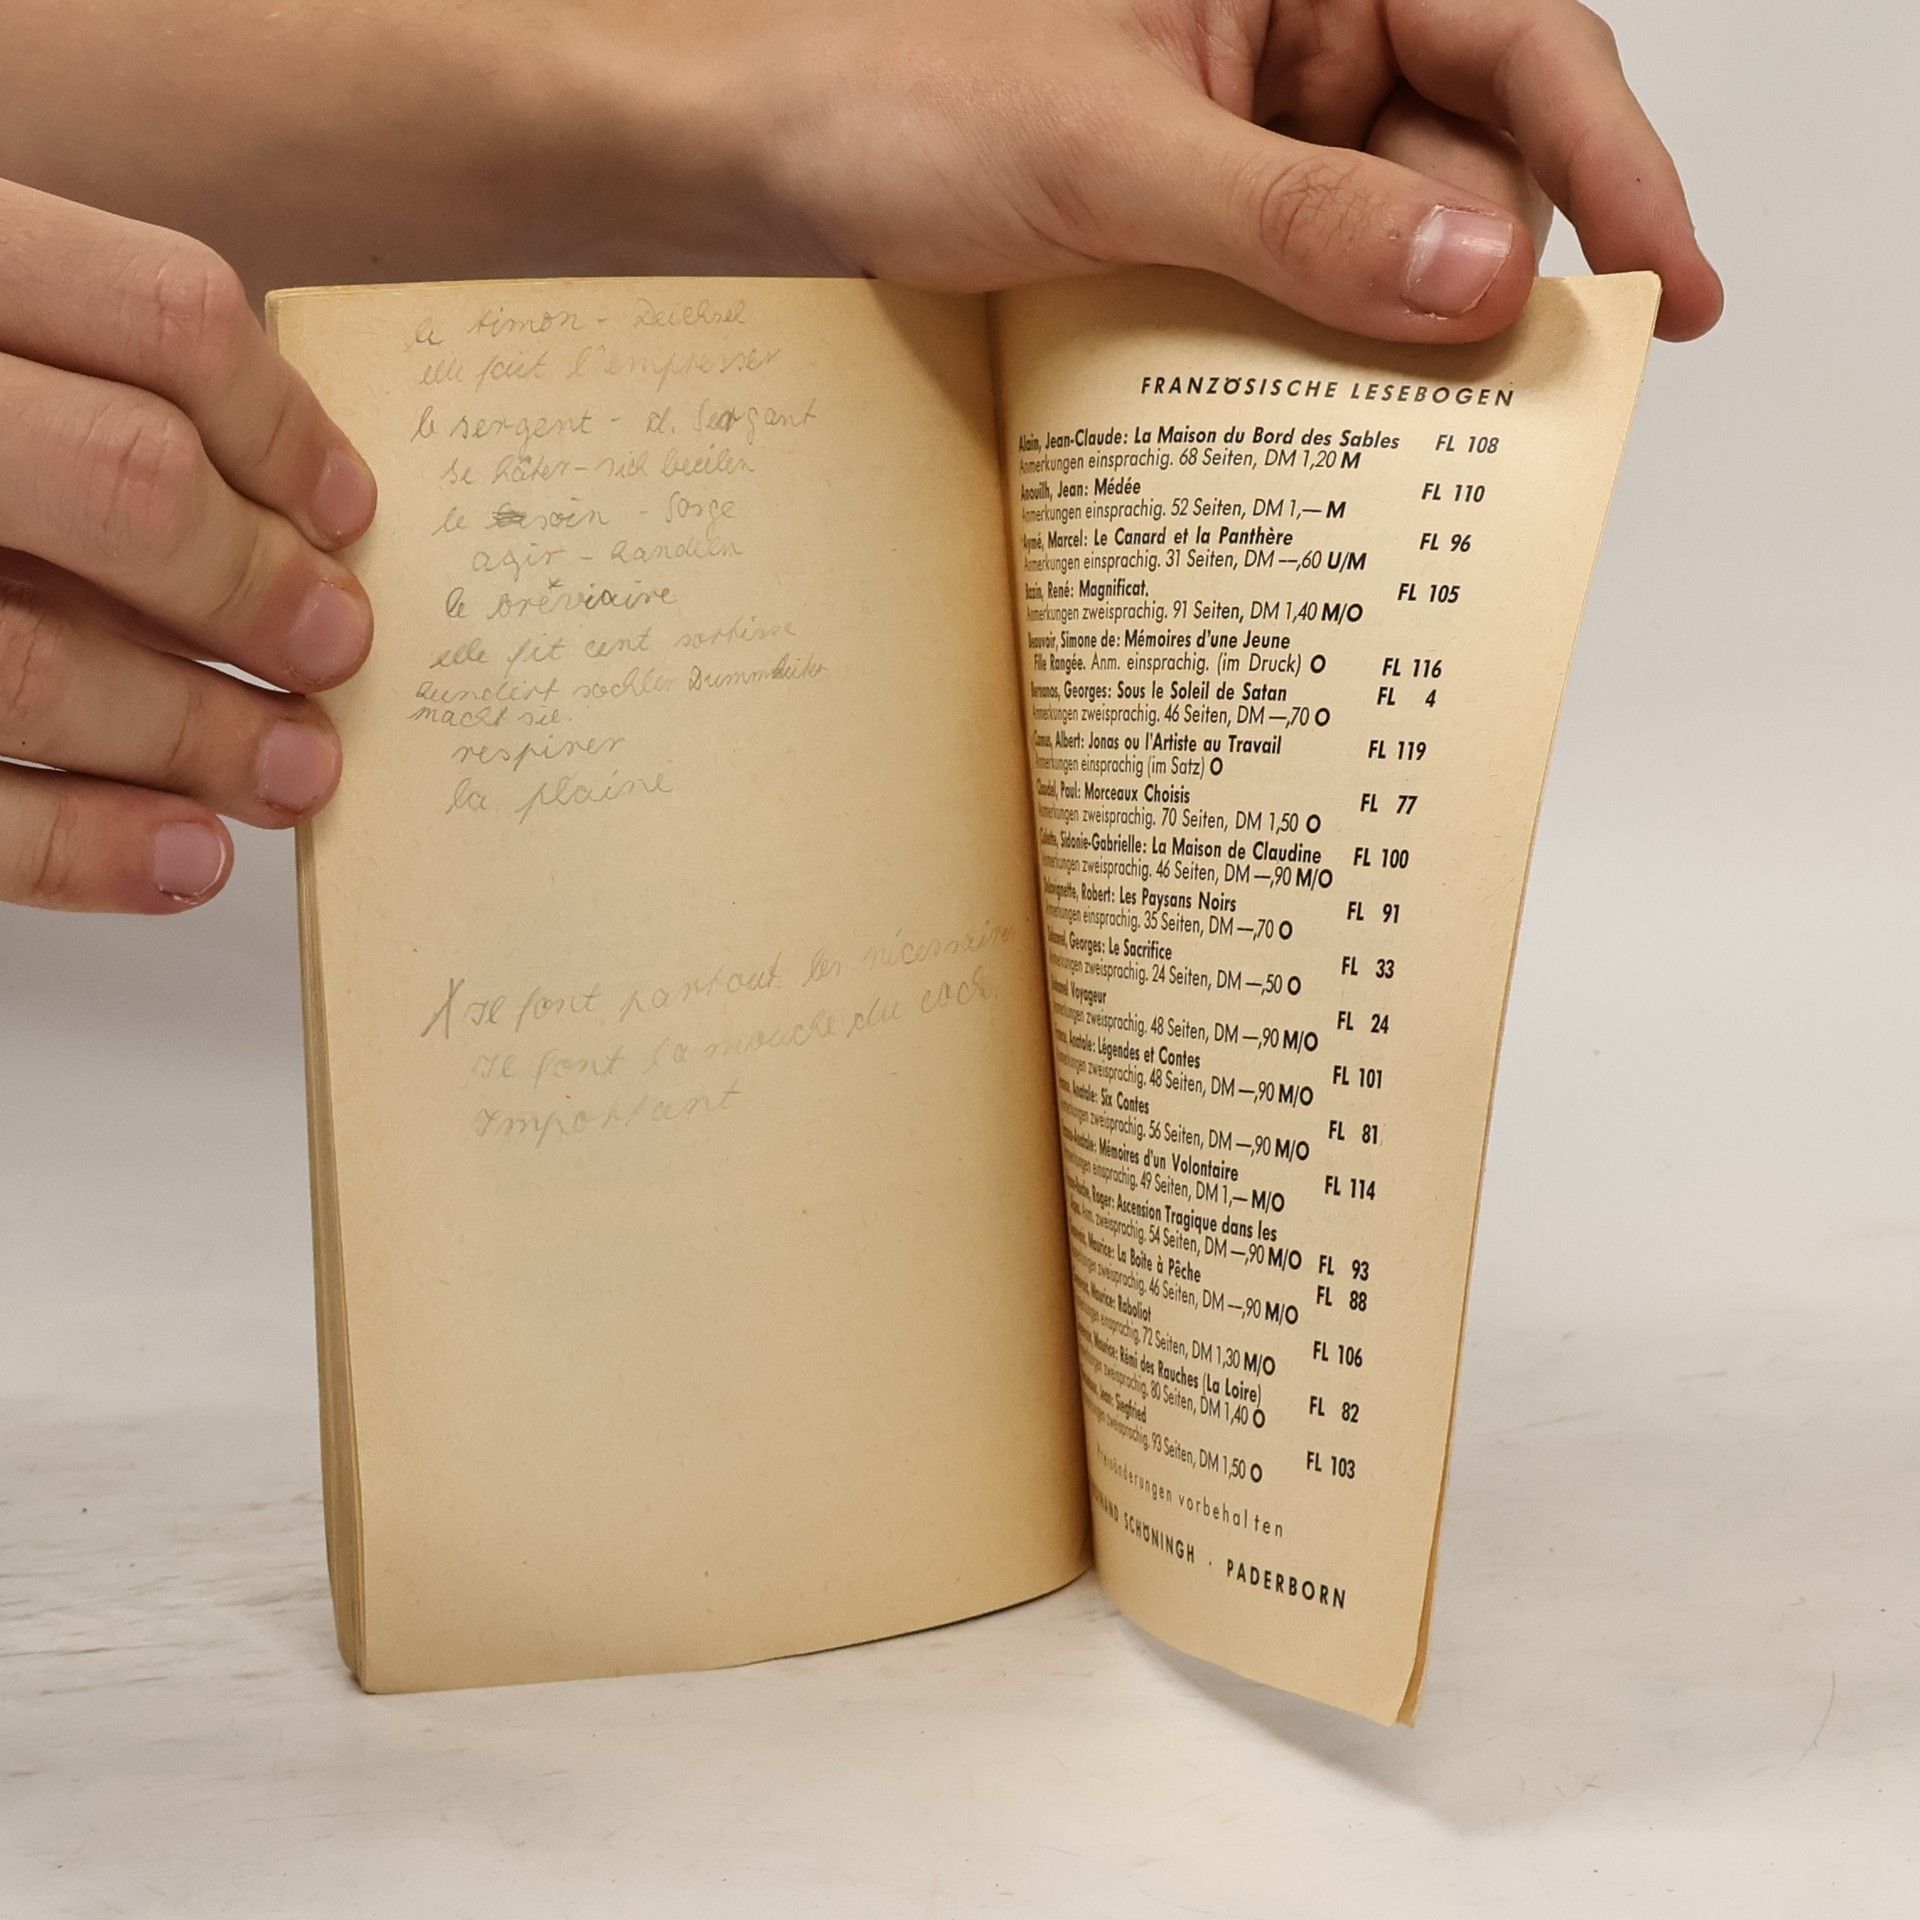 le timon - Deichsel
elle fait l'empresser
le sergent - d. Sergant
se hâter - sich beeilen
le soin - Sorge
agir - handeln
le bréviaire
elle fit cent sottises
hundert Dummheiten
macht sie.
respirer
la plaine
X Il font partout les nécessaires
Il font la mouche du coche.
Important
FRANZÖSISCHE LESEBOGEN
Alain, Jean-Claude: La Maison du Bord des Sables FL 108
Anmerkungen einsprachig. 68 Seiten, DM 1,20 M
Anouilh, Jean: Médée FL 110
Anmerkungen einsprachig. 52 Seiten, DM 1,— M
Aymé, Marcel: Le Canard et la Panthère FL 96
Anmerkungen einsprachig. 31 Seiten, DM —,60 U/M
Bazin, René: Magnificat. FL 105
Anmerkungen zweisprachig. 91 Seiten, DM 1,40 M/O
Beauvoir, Simone de: Mémoires d'une Jeune
Fille Rangée. Anm. einsprachig. (im Druck) O FL 116
Bernanos, Georges: Sous le Soleil de Satan FL 4
Anmerkungen zweisprachig. 46 Seiten, DM —,70 O
Camus, Albert: Jonas ou l'Artiste au Travail FL 119
Anmerkungen einsprachig (im Satz) O
Claudel, Paul: Morceaux Choisis FL 77
Anmerkungen zweisprachig. 70 Seiten, DM 1,50 O
Colette, Sidonie-Gabrielle: La Maison de Claudine FL 100
Anmerkungen zweisprachig. 46 Seiten, DM —,90 M/O
Delavignette, Robert: Les Paysans Noirs FL 91
Anmerkungen einsprachig. 35 Seiten, DM —,70 O
Duhamel, Georges: Le Sacrifice FL 33
Anmerkungen zweisprachig. 24 Seiten, DM —,50 O
Duhamel Voyageur FL 24
Anmerkungen zweisprachig. 48 Seiten, DM —,90 M/O
France, Anatole: Légendes et Contes FL 101
Anmerkungen zweisprachig. 48 Seiten, DM —,90 M/O
France, Anatole: Six Contes FL 81
Anmerkungen zweisprachig. 56 Seiten, DM —,90 M/O
France, Anatole: Mémoires d'un Volontaire FL 114
Anmerkungen einsprachig. 49 Seiten, DM 1,— M/O
Roger: Ascension Tragique dans les
Anm. zweisprachig. 54 Seiten, DM —,90 M/O FL 93
Genevoix, Maurice: La Boîte à Pêche FL 88
Anmerkungen zweisprachig. 46 Seiten, DM —,90 M/O
Genevoix, Maurice: Raboliot FL 106
Anmerkungen einsprachig. 72 Seiten, DM 1,30 M/O
Genevoix, Maurice: Rémi des Rauches (La Loire) FL 82
Anmerkungen zweisprachig. 80 Seiten, DM 1,40 O
Giraudoux, Jean: Siegfried FL 103
Anmerkungen zweisprachig. 93 Seiten, DM 1,50 O
Preisänderungen vorbehalten
FERDINAND SCHÖNINGH · PADERBORN